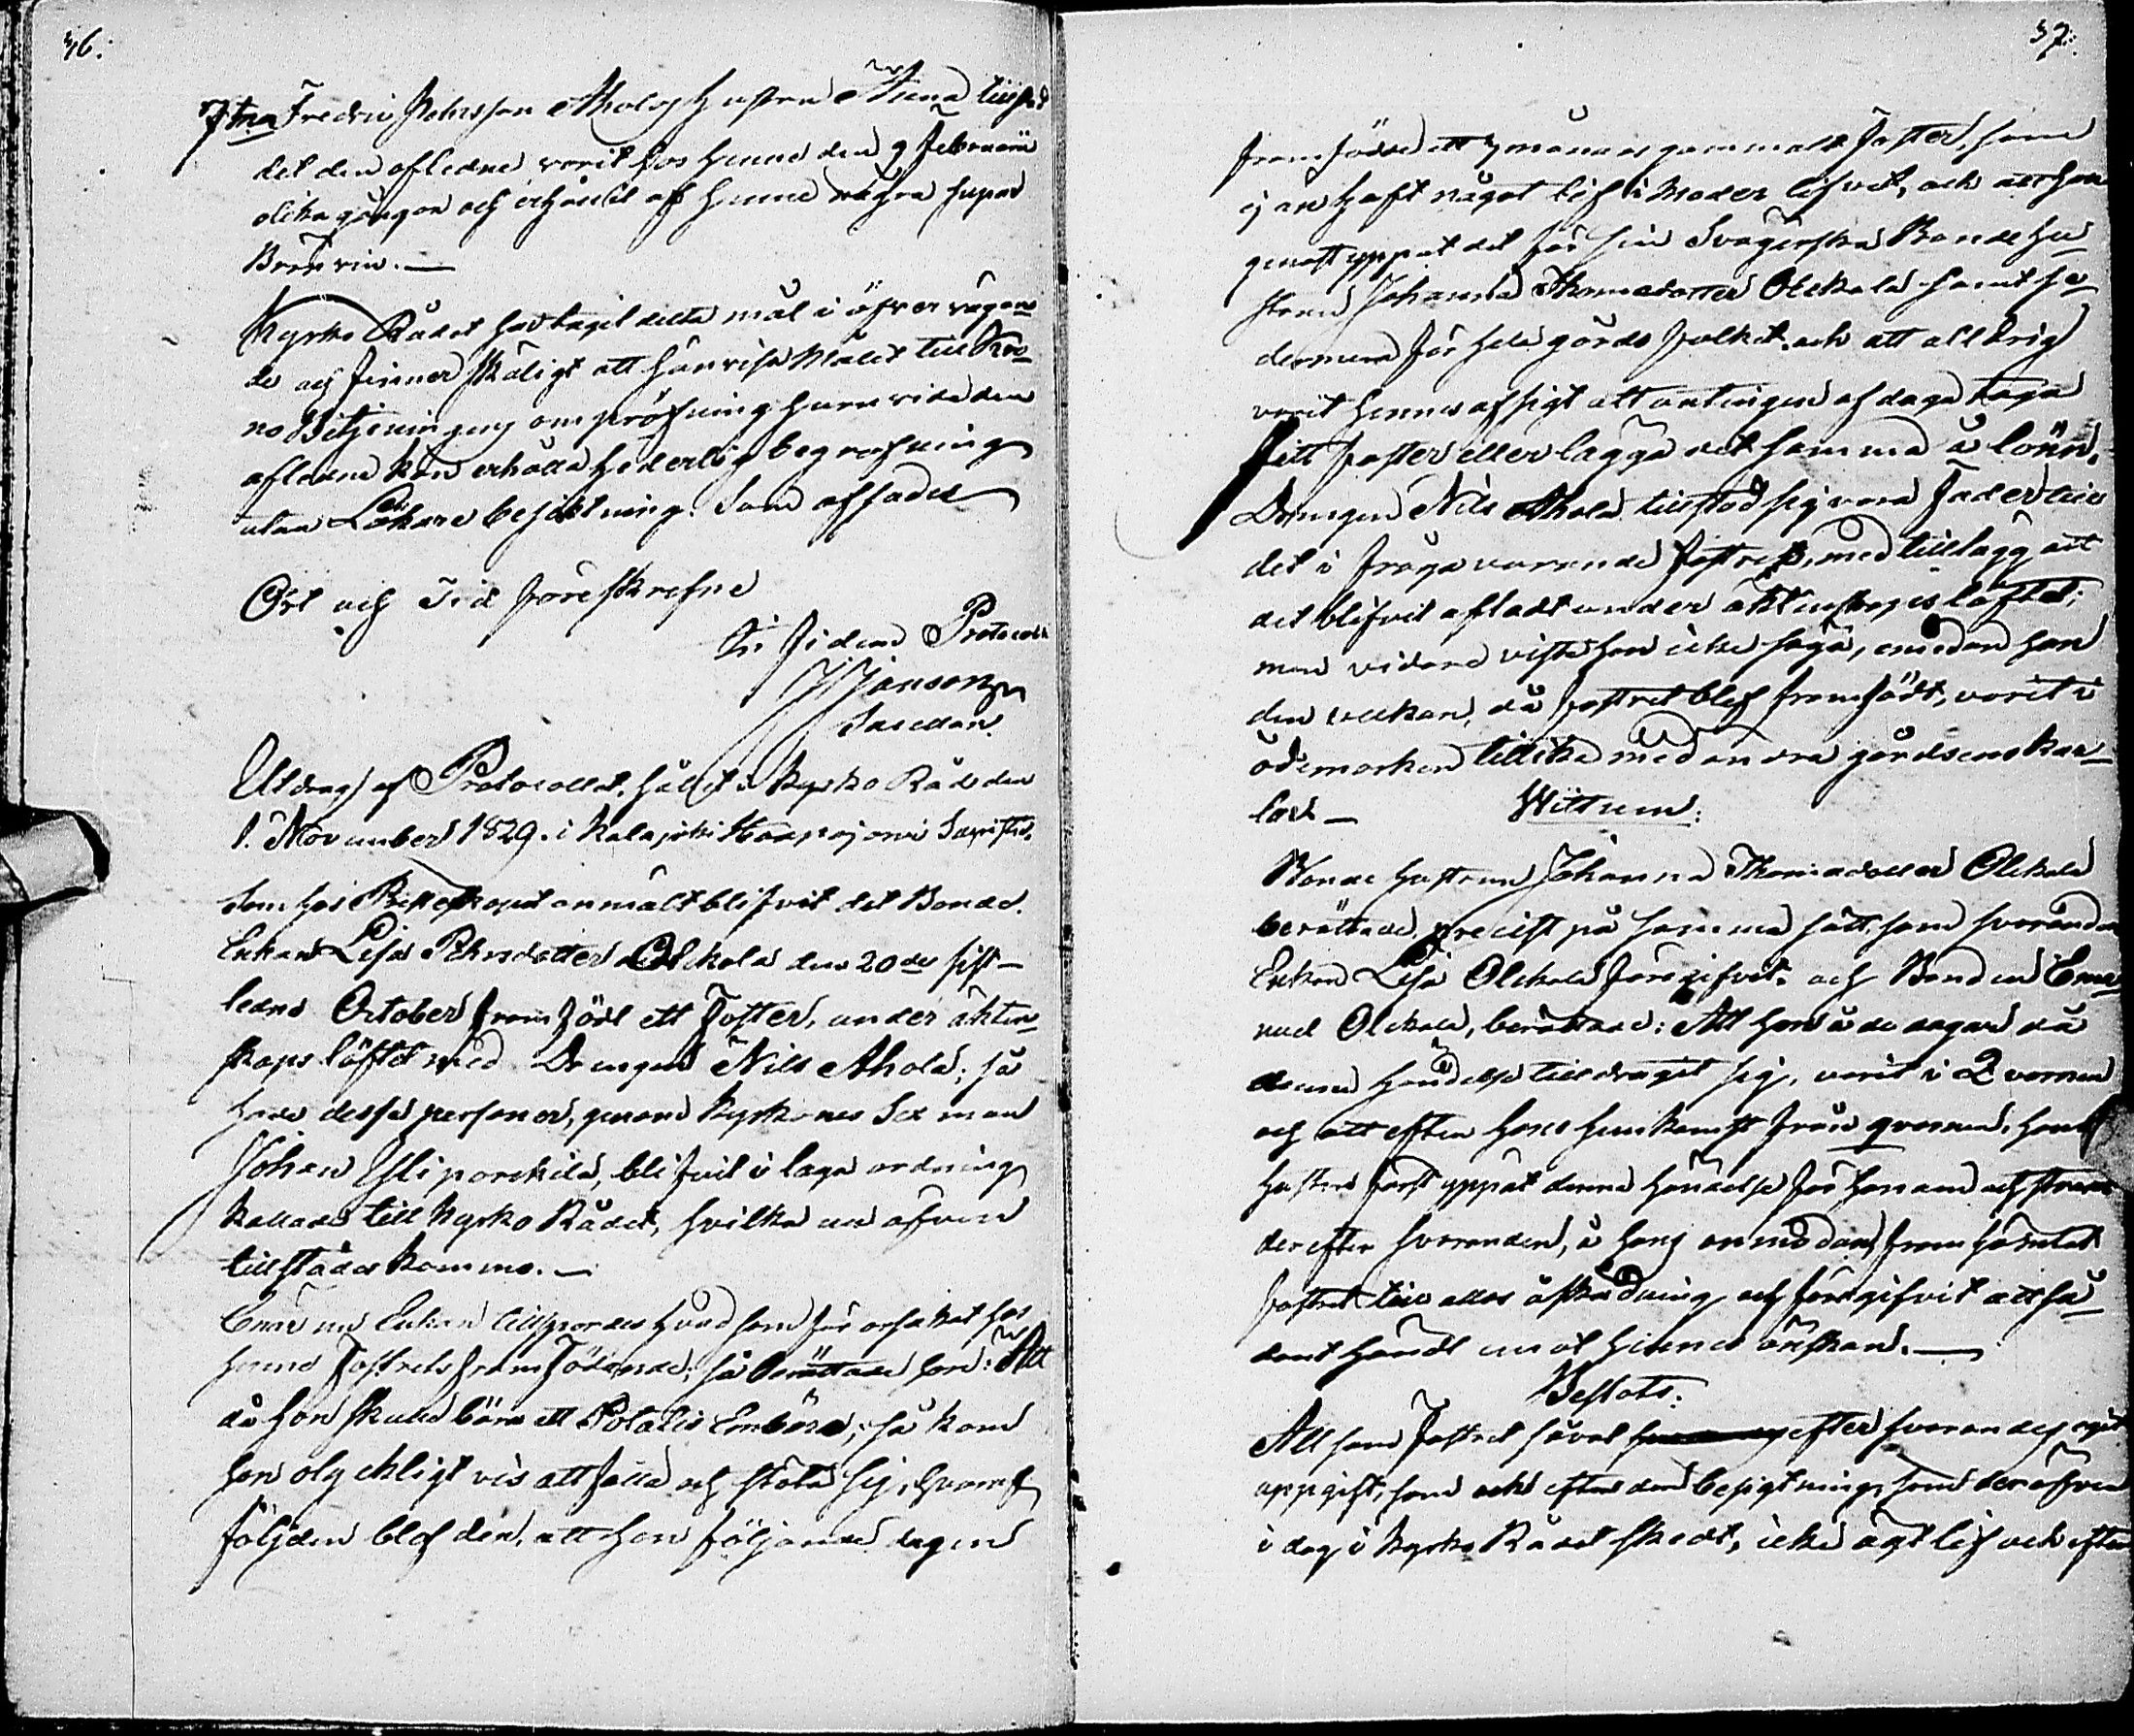 36.
7:tmo Fredric Pehrsson Ahola's hustru Anna tillstod
det den aflidne varit hos henne den 9 Februarii
olika gångor och erhållit af henne några supar
Brännvin. —
Kyrko Rådet har tagit detta mål i öfvervägan-
de och finner skäligt att hänvisa Målet till Kro-
no Betjeningen om pröfning huruvida den
aflidne kan erhålla hederlig begrafning
utan Läkare besigtning. Som affades
Ort och Tid föreskrefne
In fidem Protocolli
Janson
Sacellan.
Utdrag af Protocollet, hållit i Kyrko Råd den
1. November 1829. i Kalajoki Haapajärvi Sacristia.
Som hos Pastorskapet anmält blifvit det Bonde
Enkan Lisa Pehrsdotter Olckola den 20de sist-
ledne October framfödt ett Foster, under äkten-
skaps löfte med Drengen Nils Ahola; så
hade dessa personer, genom Kyrkones Sexman
Johan Yliparckila, blifvit i laga ordning
kallade till Kyrko Rådet, hvilka nu äfven
tillstädes kommo. —
Enär nu Enkan tillspordes hvad som för orsakat hos
henne Fostrets framfödande; så berättade hon: Att
då hon skulle bära ett Potatis Embare; så kom
hon olyckligt vis att falla och stöta sig, hvaraf
följden blef den, att hon följande dagen
37.
framfödde ett månader gammalt Foster, som
ej än haft något lif i moder lifvet, och att hon
genast yppat det för sin Svägerska Bonde Hu-
strun Johanna Thomadotter Olckola samt se-
dermera för hela gårds folket, och att alldrig
varit hennes afsigt att antingen af daga taga
sitt foster eller lägga det samma å lönn.
Drengen Nils Ahola tillstod sig vara Fader till
det i fråga varande Fostret, med tillägg att
det blifvit afladt under äktenskaps löfte;
men vidare viste han icke säga, emedan han
den veckan, då fostret blef framfödt, varit i
ödemarken tillika med andra gårdsens kar-
lar. — Wittnen:
Bonde hustrun Johanna Thomadotter Olckola
berättade, precist på samma sätt, som svaranden
Enkan Lisa Olckola föregifvit. och Bonden Ema-
nuel Olckola, berättade: Att han å de dagar då
denna händelse tilldragit sig, varit i Qvarnen
och att efter hans hemkomst från qvarnen, hans
hustru först yppat denna händelse för honom och strax
derefter svaranden, å hans anmodan, framhämtat
fostret till allas åskådning och föregifvit att så-
dant händt emot hennes önskan. —
Beslöts:
All som Fostret såväl efter svarandes eget
uppgift, som ock efter den besigtning, som deröfver
i dag i Kyrko Rådet skedt, icke ägt lif och efter